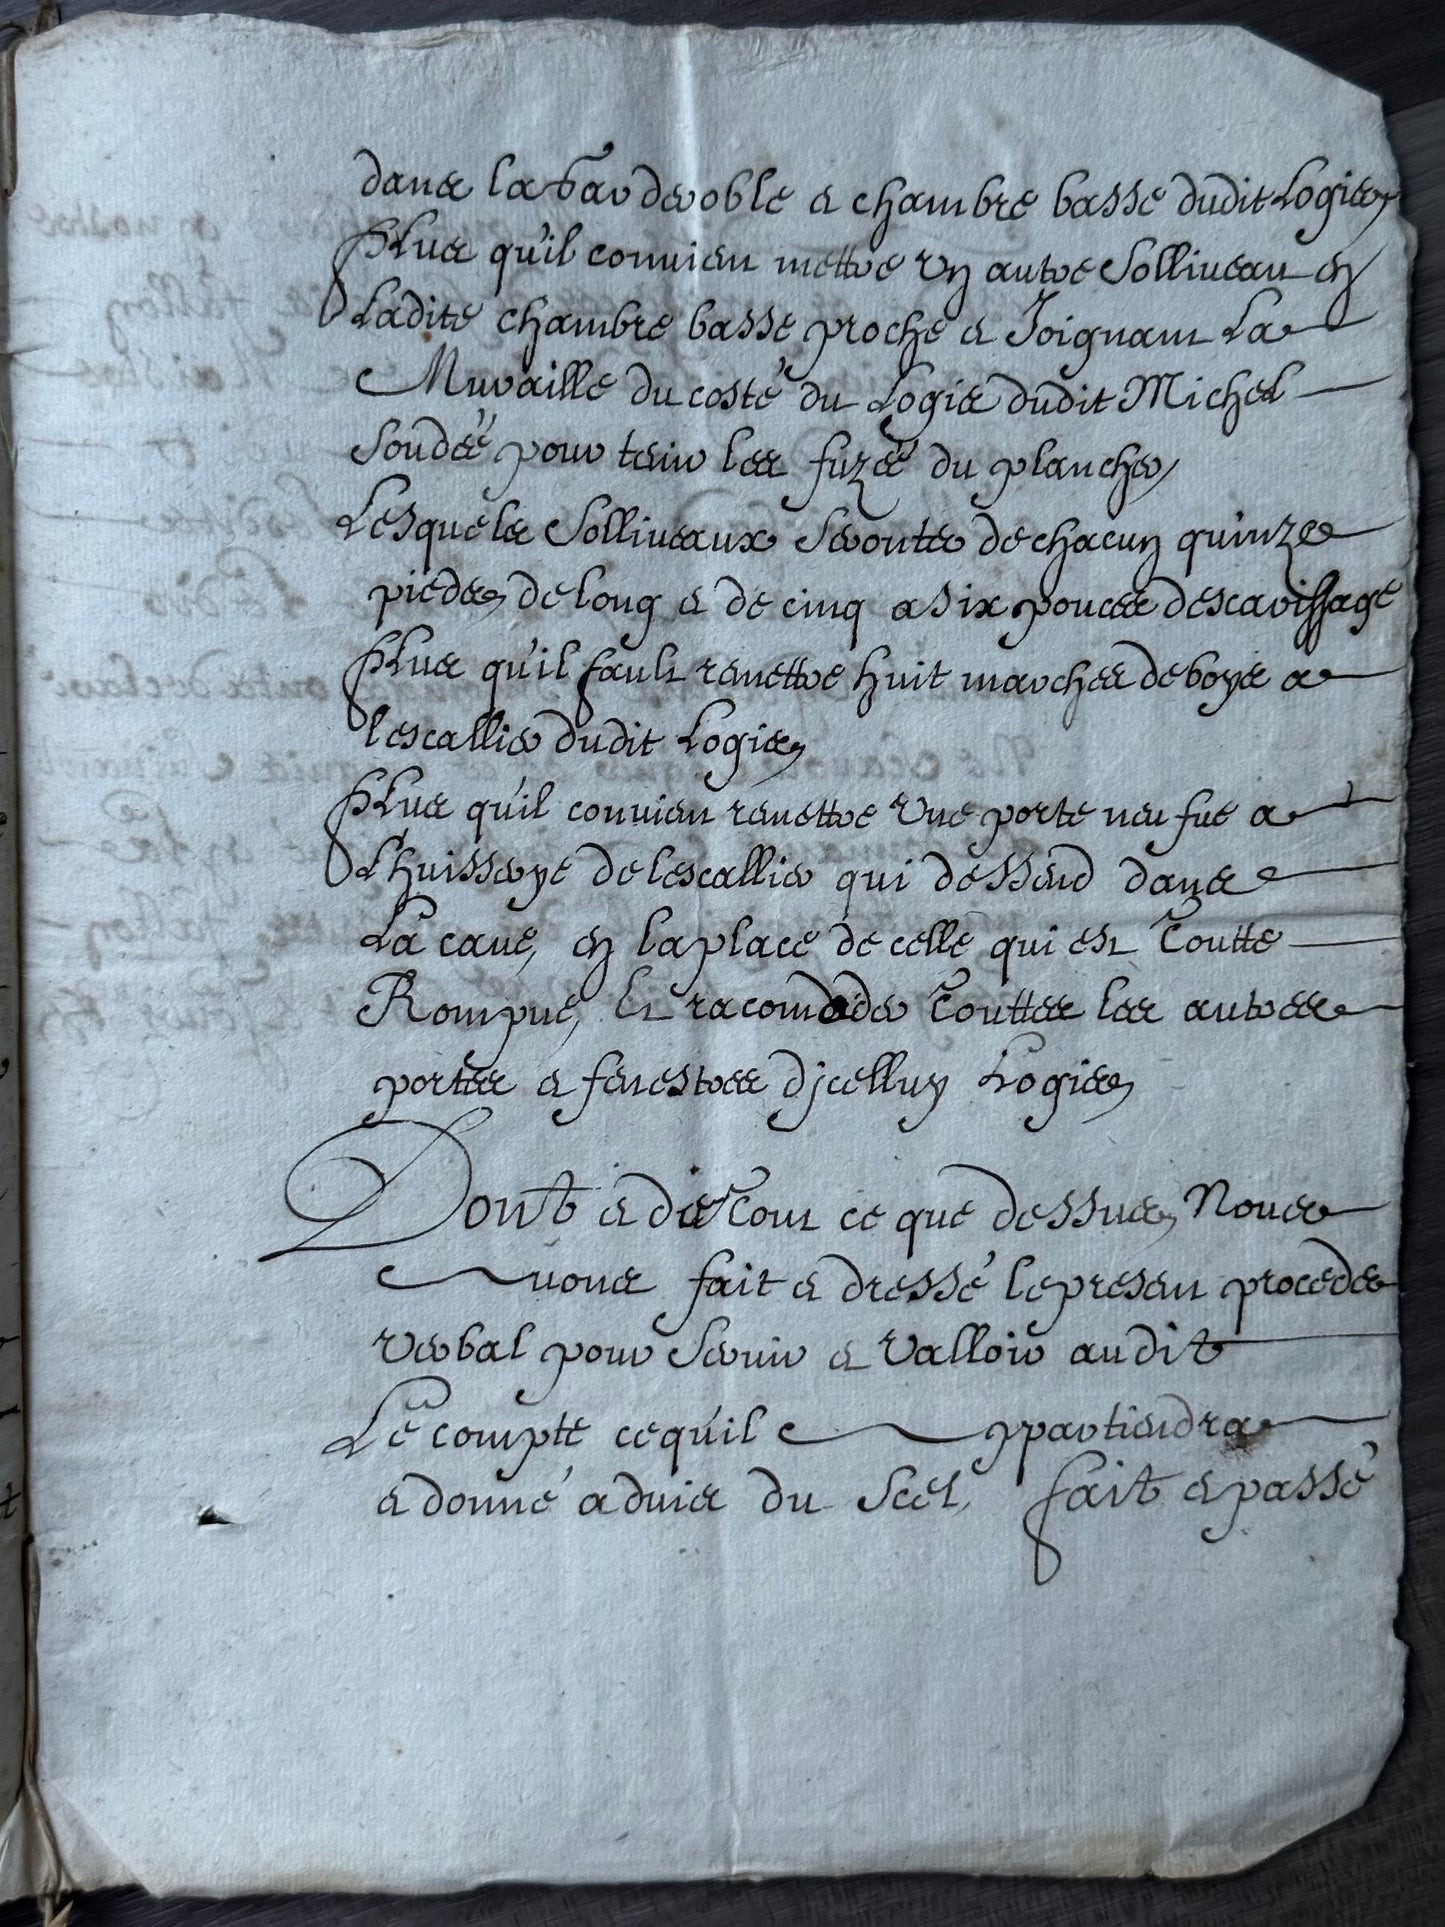 dans la garderoble & chambre basse dudit Logis,
Plus qu'il convient mettre un autre Solliveau en
Ladite chambre basse proche & Joignant La
Muraille du costé du Logis dudit Michel
pour tenir les fuzée du plancher,
Lesquels Solliveaux Seront de chacun quinze
pieds, de long & de cinq a six pouces descarissage
Plus qu'il fault remettre huit marches de boys a
lescallier dudit Logis,
Plus qu'il convient remettre Une porte neufue a
L'huisserye de lescallier qui dessend dans
La cave, en la place de celle qui est Toutte
Rompue, Et racomoder Touttes les autres
portes & fenestres djcelluy Logis,
Dont & de Tout ce que dessus, Nous
avons fait & dressé le present procedz
Verbal pour Servir & Valloir audit
Le compte ce qu'il appartiendra
& donné advis du Scel, fait & passé